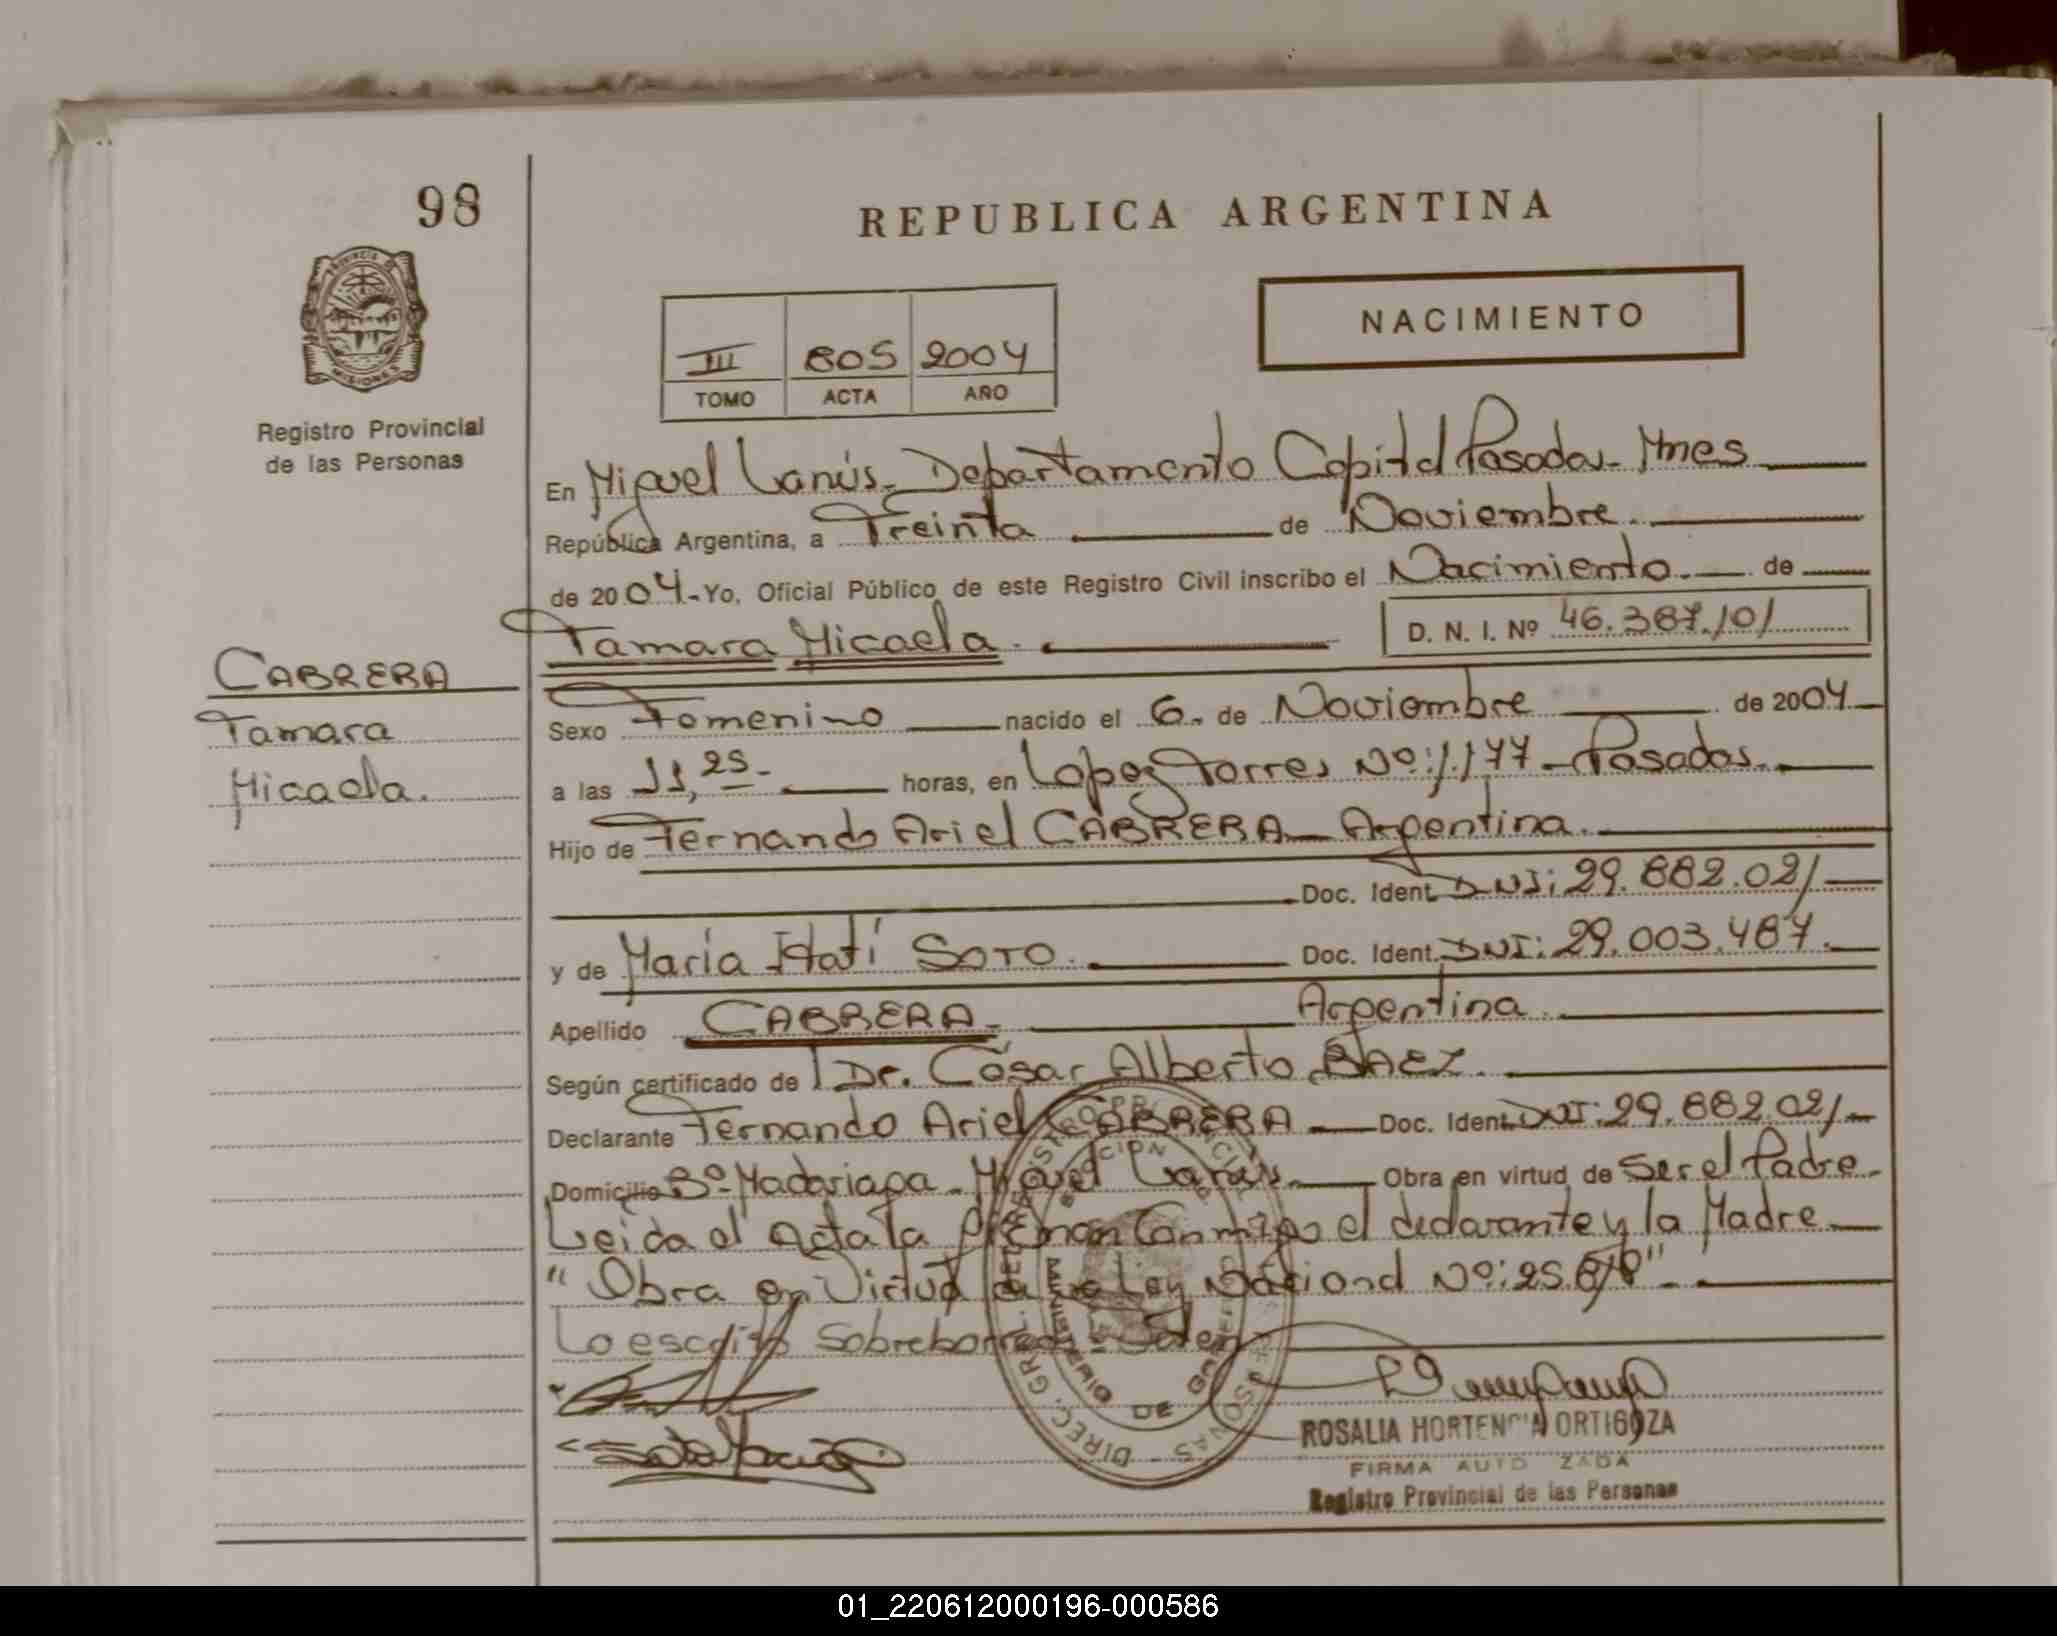 98
REPUBLICA ARGENTINA
PROVINCIA DE
MISIONES
Registro Provincial
de las Personas
III 805 2004
TOMO ACTA AÑO
NACIMIENTO
En Miguel Lanús - Departamento Capital Posadas - Mnes
República Argentina, a Treinta de Noviembre.
de 2004.- Yo, Oficial Público de este Registro Civil inscribo el Nacimiento. de
Tamara Micaela. D. N. I. Nº 46.387.101
CABRERA
Tamara
Micaela.
Sexo Femenino nacido el 6. de Noviembre de 2004
a las 11,25- horas, en Lopez Torres Nº: 1.177 - Posadas.
Hijo de Fernando Ariel CABRERA - Argentina.
Doc. Ident. DNI: 29.882.021
y de María Itatí SOTO. Doc. Ident. DNI: 29.003.487.
Apellido CABRERA - Argentina.
Según certificado de Dr. César Alberto BAEZ.
Declarante Fernando Ariel CABRERA Doc. Ident. DNI: 29.882.021
Domicilio Bº- Madariaga - Miguel Lanús. Obra en virtud de Ser el Padre.
Leida el acta la firman conmigo el declarante y la Madre
"Obra en Virtud de la Ley Nacional Nº: 25.
Lo escrito sobreborrado: Valen
DIREC. GRAL. DEL REGISTRO
MINISTERIO DE
ROSALIA HORTENCIA ORTIGOZA
FIRMA AUTORIZADA
Registro Provincial de las Personas
01_220612000196-000586